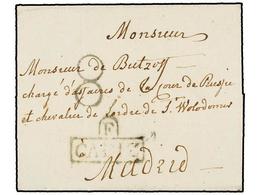 Monsieur
Monsieur de Butzow
chargé d'affaires de la Cour de Russie
et chevalier de l'ordre de St. Wolodomir
8
F
Madrid